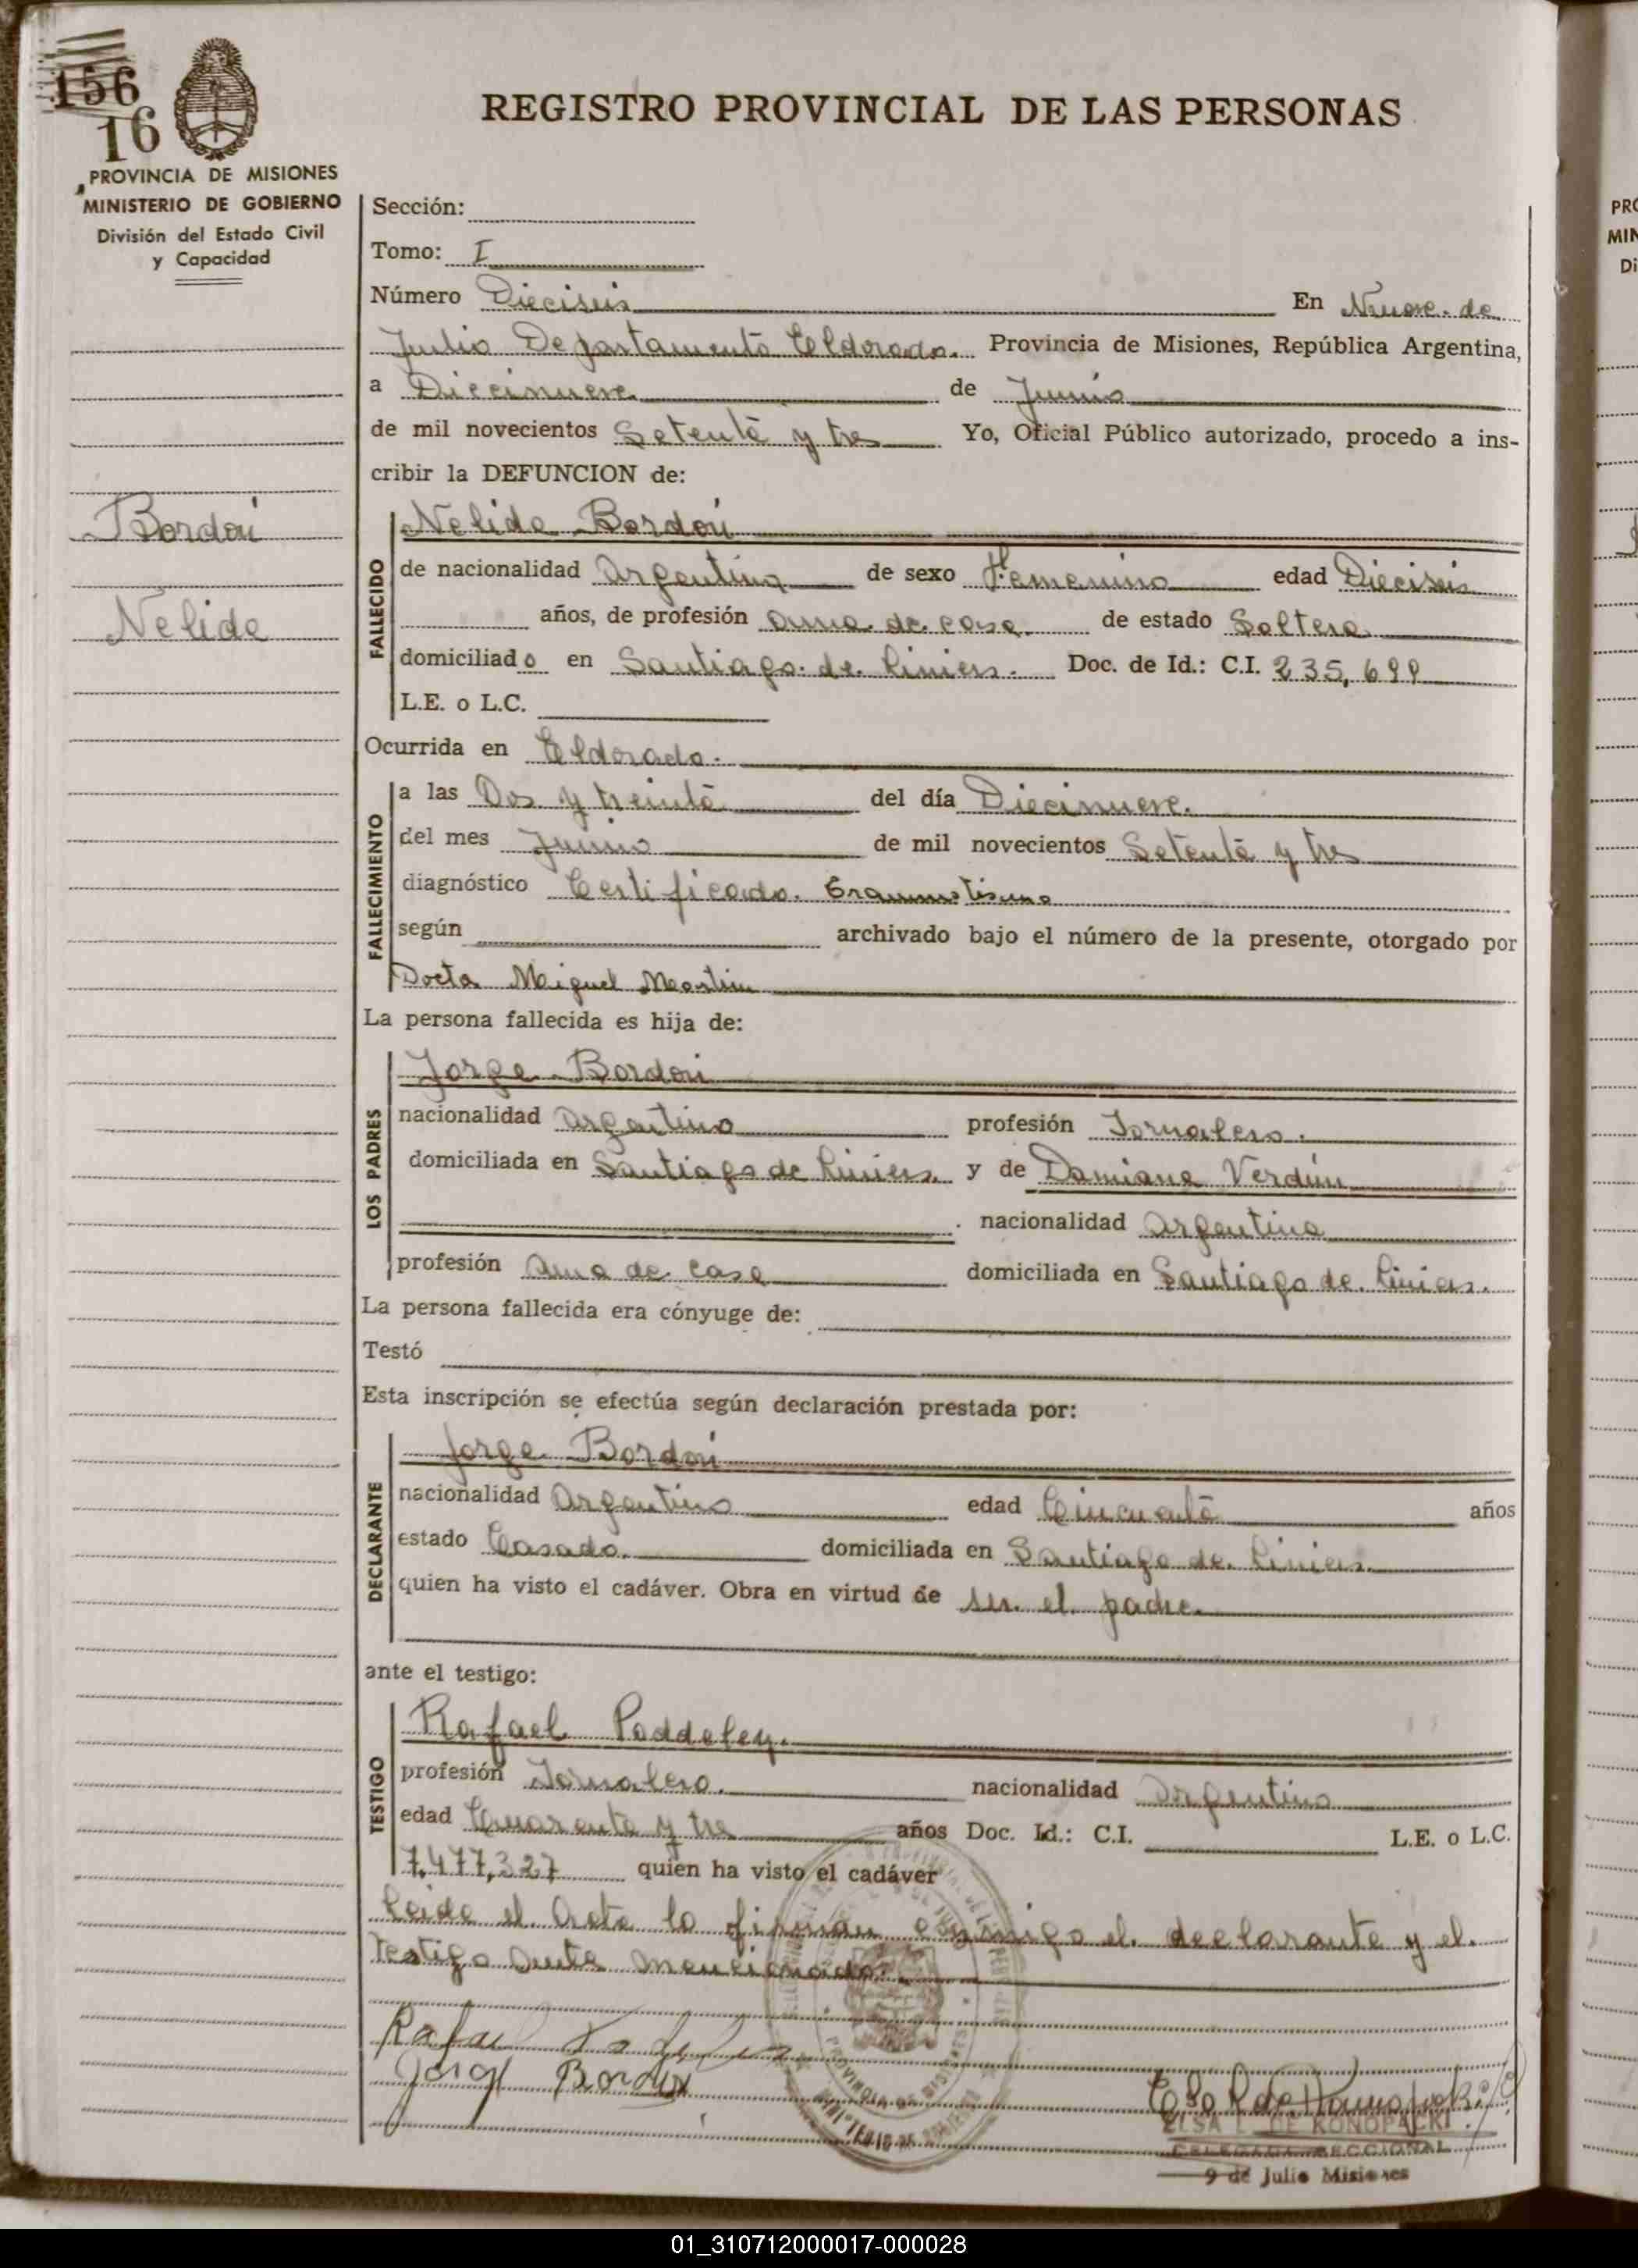 156
16
REGISTRO PROVINCIAL DE LAS PERSONAS
PROVINCIA DE MISIONES
MINISTERIO DE GOBIERNO
División del Estado Civil
y Capacidad
Bordon
Nelida
Sección:
Tomo: I
Número Dieciseis En Nueve de
Julio Departamento Eldorado. Provincia de Misiones, República Argentina,
a Diecinueve de Junio
de mil novecientos Setenta y tres Yo, Oficial Público autorizado, procedo a ins-
cribir la DEFUNCION de:
Nelida Bordon
FALLECIDO
de nacionalidad Argentina de sexo Femenino edad Dieciseis
años, de profesión ama de casa de estado Soltera
domiciliado en Santiago de Liniers. Doc. de Id.: C.I. 235,699
L.E. o L.C.
Ocurrida en Eldorado.
FALLECIMIENTO
a las Dos y treinta del día Diecinueve.
del mes Junio de mil novecientos Setenta y tres
diagnóstico Certificado. Eraumatismo
según archivado bajo el número de la presente, otorgado por
Docta Miguel Martin
La persona fallecida es hija de:
LOS PADRES
Jorge Bordon
nacionalidad Argentino profesión Jornalero.
domiciliada en Santiago de Liniers. y de Damiana Verdún
nacionalidad Argentina
profesión ama de casa domiciliada en Santiago de Liniers.
La persona fallecida era cónyuge de:
Testó
Esta inscripción se efectúa según declaración prestada por:
DECLARANTE
Jorge Bordon
nacionalidad Argentino edad Cincuenta años
estado Casado. domiciliada en Santiago de Liniers.
quien ha visto el cadáver. Obra en virtud de ser el padre.
ante el testigo:
TESTIGO
Rafael Poddeley.
profesión Jornalero. nacionalidad Argentino
edad Cuarenta y tres años Doc. Id.: C.I. L.E. o L.C.
7,477,327 quien ha visto el cadáver
Leida el Acta lo firman conmigo el declarante y el
Testigo ante mencionado.
Rafael
Jorge Bordon
ELSA L. DE KONOPACKI
DELEGADA SECCIONAL
9 de Julio Misiones
01_310712000017-000028